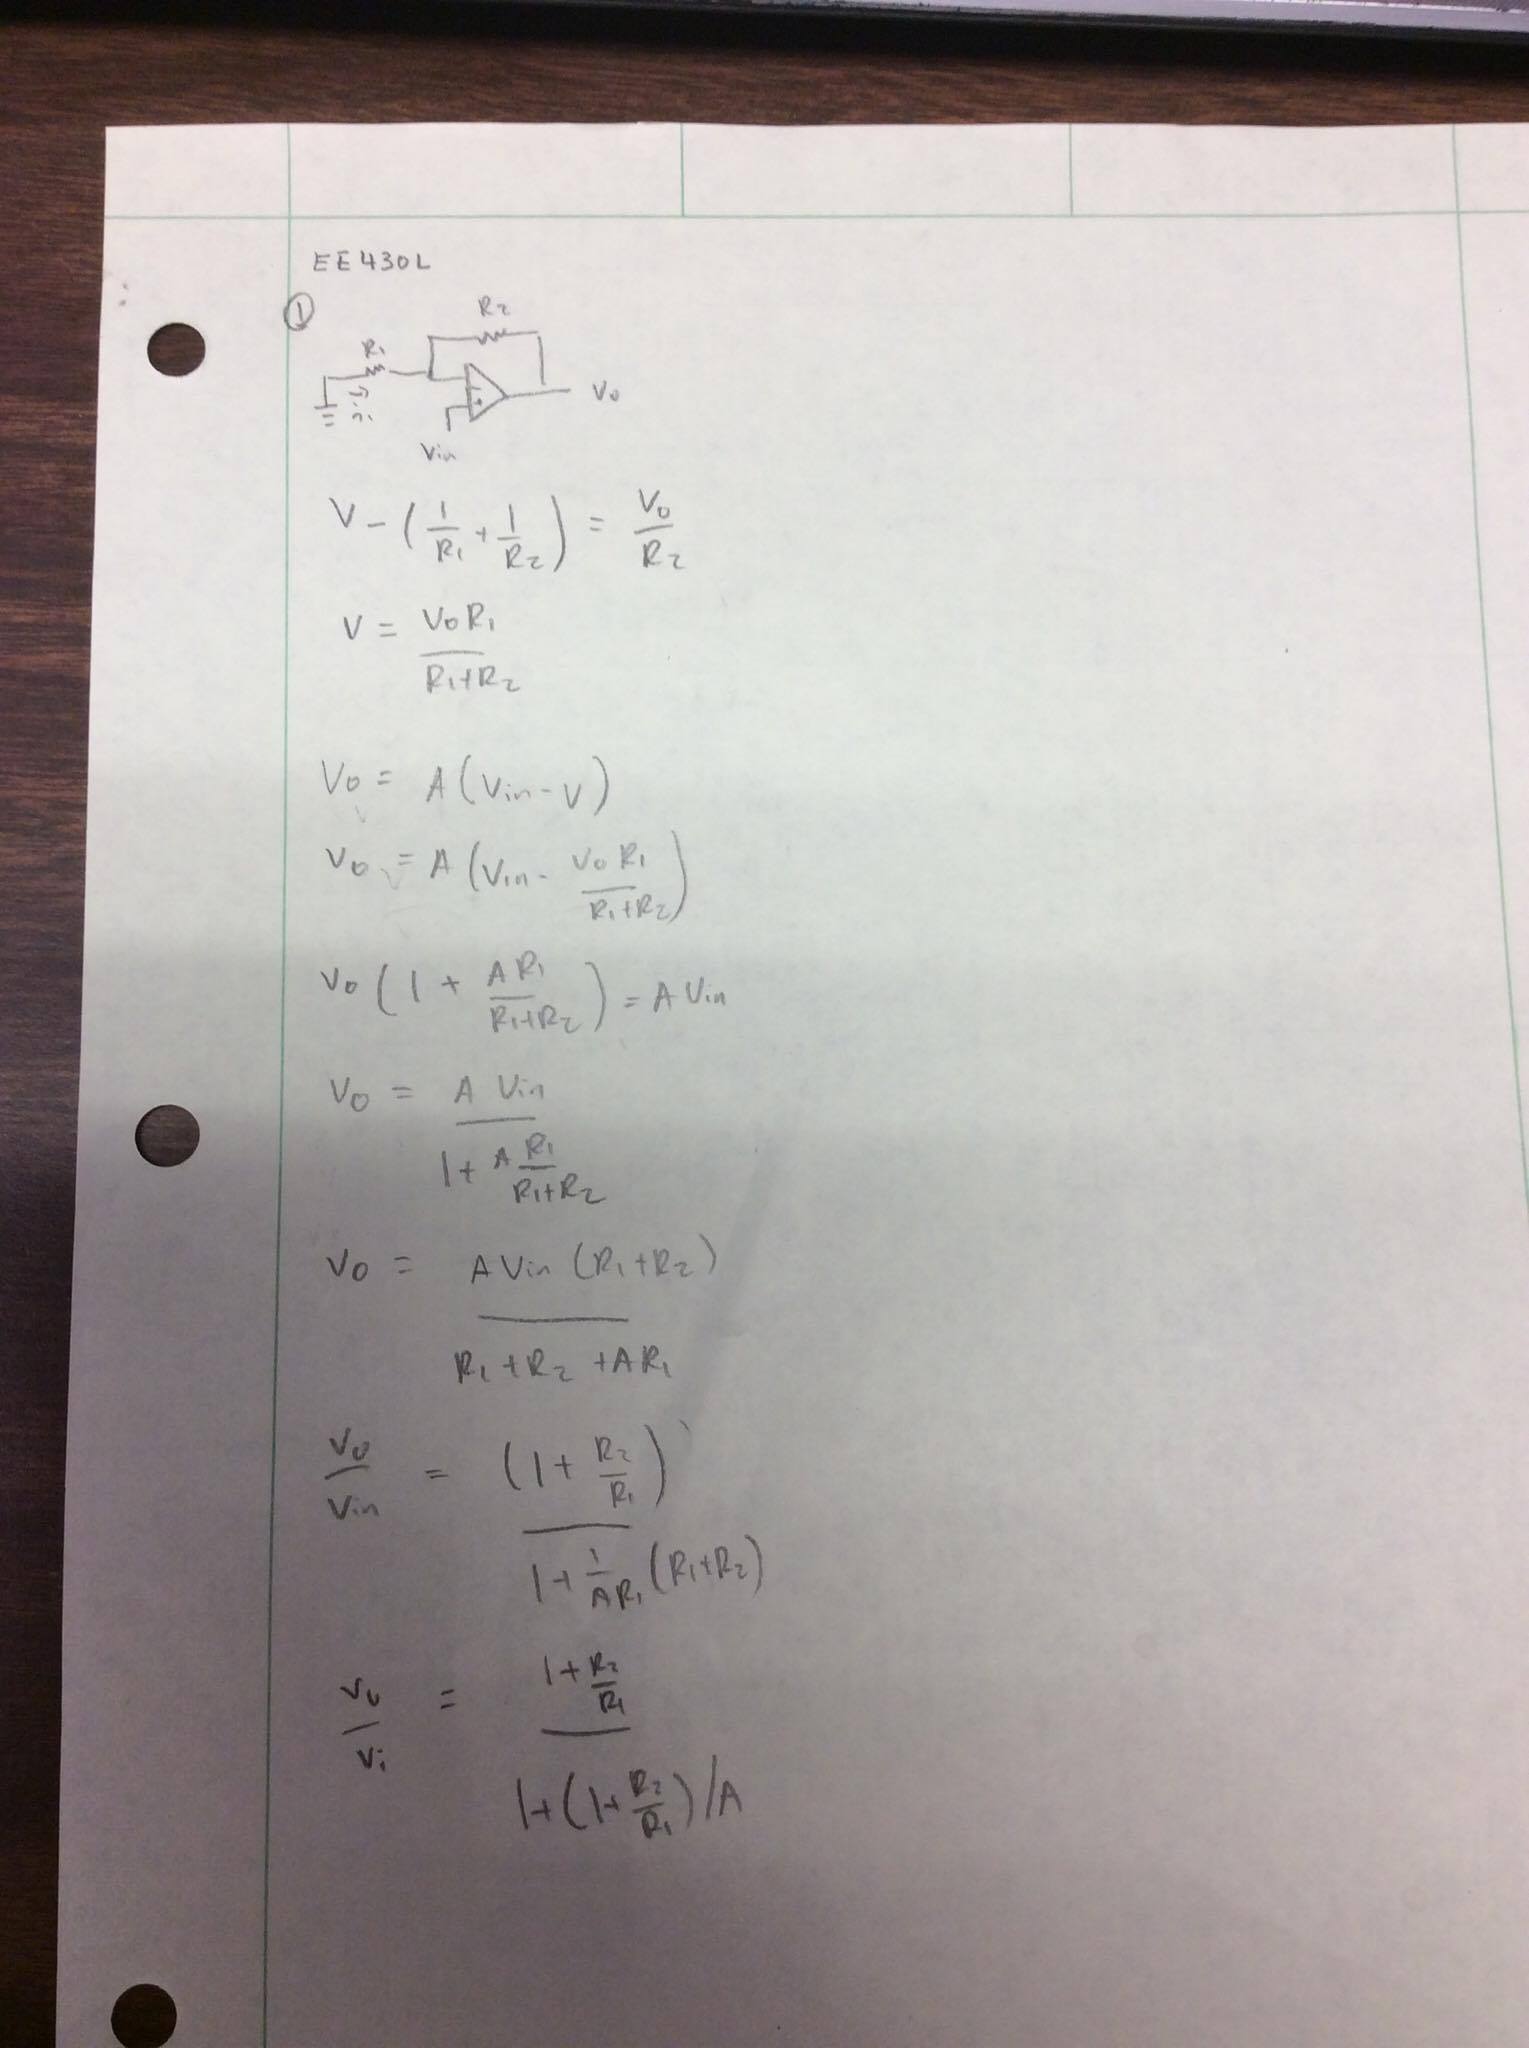 EE430L
①
R2
R1
Vo
i
Vin
V-(1/R1 + 1/R2) = Vo/R2
V = VoR1/(R1+R2)
Vo = A(Vin-V)
Vo = A(Vin - VoR1/(R1+R2))
Vo(1 + AR1/(R1+R2)) = AVin
Vo = A Vin/(1+ A R1/(R1+R2))
Vo = AVin(R1+R2)/(R1+R2+AR1)
Vo/Vin = (1+ R2/R1)/(1+ 1/AR1 (R1+R2))
Vo/Vi = (1+ R2/R1)/(1+(1+ R2/R1)/A)